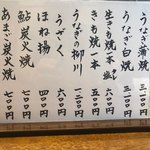 うなぎ蒲焼 三二〇〇円
うなぎ白焼 三二〇〇円
生きも焼一本 塩 六〇〇円
きも焼一本 五〇〇円
うなぎの柳川 一二〇〇円
うざく 一一〇〇円
ほね揚 四〇〇円
鮎炭火焼 七〇〇円
あまご炭火焼 七〇〇円